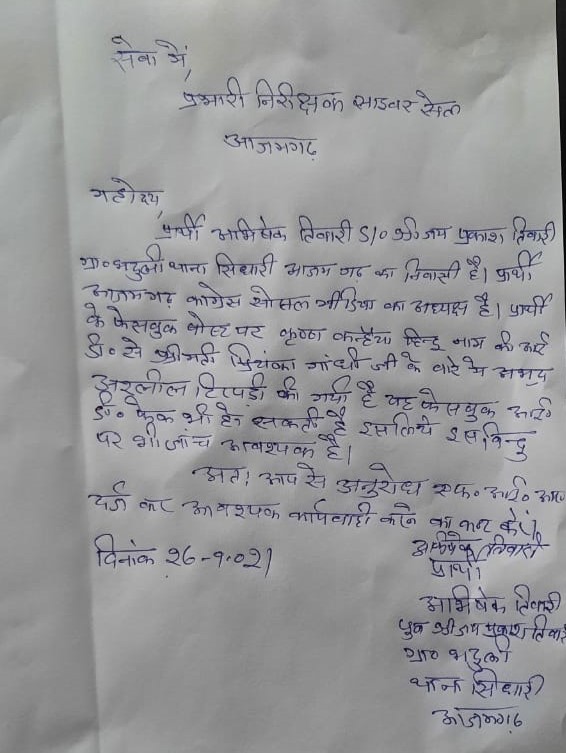 सेवा में,
प्रभारी निरीक्षक साइबर सेल
आजमगढ़
महोदय,
प्रार्थी अभिषेक तिवारी S/o श्री जय प्रकाश तिवारी
ग्रा० भदुली थाना सिधारी आजमगढ़ का निवासी है। प्रार्थी
आजमगढ़ कांग्रेस सोसल मीडिया का अध्यक्ष है। प्रार्थी
के फेसबुक पोस्ट पर कृष्णा कन्हैया हिन्दू नाम की आई
डी० से श्रीमती प्रियंका गांधी जी के बारे में अभद्र
अश्लील टिप्पड़ी की गयी है यह फेसबुक आई०
डी० फेक भी हो सकती है इसलिये इस बिन्दु
पर भी जाँच आवश्यक है।
अतः आप से अनुरोध एफ० आई० आर०
दर्ज कर आवश्यक कार्यवाही करने का कष्ट करें।
दिनांक 26-9-021
अभिषेक तिवारी
प्रार्थी
अभिषेक तिवारी
पुत्र श्री जय प्रकाश तिवारी
ग्रा० भदुली
थाना सिधारी
आजमगढ़